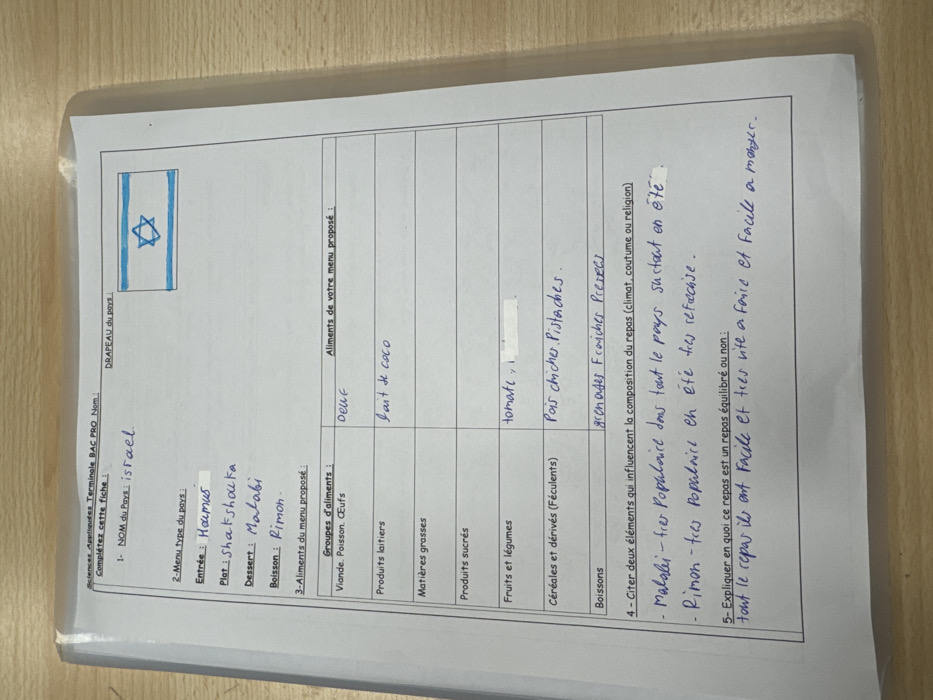 Sciences Appliquées Terminale BAC PRO Nom :
Complétez cette fiche :
DRAPEAU du pays :
1- NOM du Pays : israel
2-Menu type du pays :
Entrée : Houmus
Plat : shakshouka
Dessert : Malabi
Boisson : Rimon.
3-Aliments du menu proposé :
Groupes d'aliments : Aliments de votre menu proposé :
Viande. Poisson. Œufs oeuf
Produits laitiers lait de coco
Matières grasses
Produits sucrés
Fruits et légumes tomate,
Céréales et dérivés (Féculents) Pois chiches. Pistaches.
Boissons grenades Fraiches Presses
4 - Citer deux éléments qui influencent la composition du repas (climat, coutume ou religion)
- Malabi - tres Populaire dans tout le pays surtout en été.
- Rimon - tres Populaire en été tres refrechise.
5- Expliquer en quoi ce repas est un repas équilibré ou non :
tout le repas ils ont Facile et tres vite a Faire et Facile a manger.